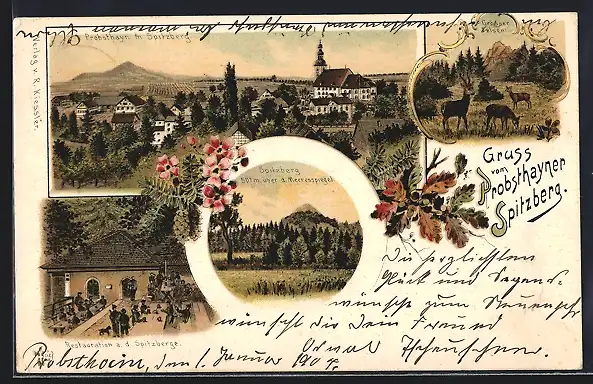 Probsthayn m. Spitzberg
Verlag v. R. Kiessler.
Grosser
Felsen.
Spitzberg
501 m. über d. Meeresspiegel
Gruss
vom
Probsthayner
Spitzberg.
Restauration a. d. Spitzberge.
Die herzlichsten
Glück und Segens-
wünsche zum
wünscht dir dein Freund
Probsthain, den 1. Januar 1904.